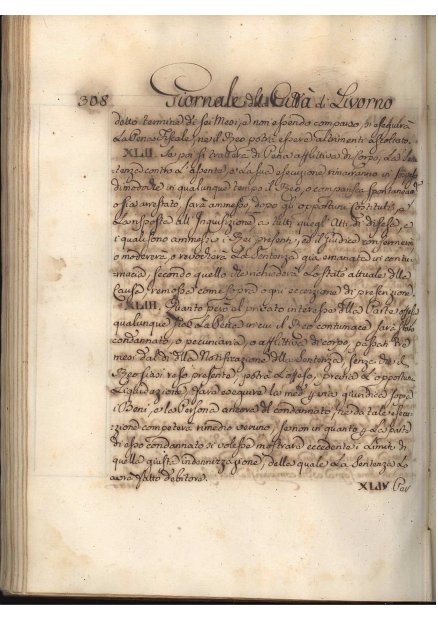 308 Giornale della Città di Livorno
detto termine di sei Mesi, e non essendo comparso, si eseguirà
La Pena Fiscale, nè il Reo potrà essere altrimenti ascoltato.
XLII. Se poi si tratterà di Pena afflittiva di Corpo, La Sen-
tenza contro L'absente, e La sua esecuzione rimarranno in
di modo che in qualunque tempo il Reo, o comparisca spontaneo,
o sia arrestato, sarà ammesso, dopo gli opportuni Costituti, e
La risposta all'Inquisizione a tutti quegl'Atti di difese, a
i quali sono ammessi i Rei presenti, ed il Giudice confermerà
o modererà, o revocherà La Sentenza già emanata in contu-
macia, secondo quello che richiederà Lo stato attuale della
Causa, remossa come sopra ogni eccezione di prefenzione
XLIII. Quanto però al privato interesse della Parte offesa
qualunque sia La Pena in cui il Reo contumace sarà stato
condannato, o pecuniaria, o afflittiva di corpo, passati tre
mesi dal dì della Notificazione della Sentenza, senza che il
Reo siasi reso presente, potrà L'offeso, previa L'opportuna
Liquidazione, fare eseguire La med.ª per via giuridica sopra
i Beni, o La Persona ancora del condannato, nè da tale esecu-
zione competerà rimedio veruno, se non in quanto, La parte
di esso condannato si volesse mostrare eccedente i Limiti di
quella giusta indennizzazione, della quale La Sentenza Lo
avrà fatto debitore.
XLIV Per